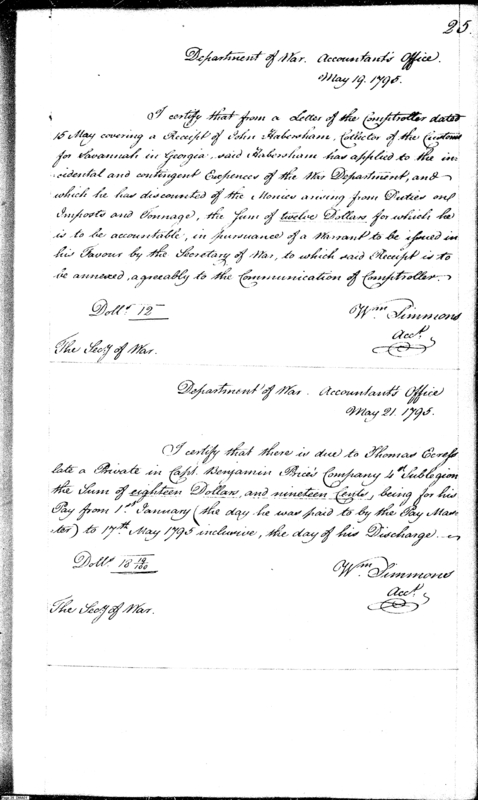 25.
Department of War. Accountant's Office.
May 19. 1795.
I certify that from a Letter of the Comptroller dated
15 May covering a Receipt of John Habersham, Collector of the Customs
for Savannah in Georgia, said Habersham has applied to the in
cidental and contingent Expences of the War Department, and
which he has discounted of the Monies arising from Duties on
Imposts and Tonnage, the Sum of twelve Dollars for which he
is to be accountable, in pursuance of a Warrant to be issued in
his Favour by the Secretary of War, to which said Receipt is to
be annexed, agreably to the Communication of Comptroller.
Dollˢ 12
Wᵐ Simmons
Accᵗ.
The Secʸ of War.
Department of War. Accountant's Office
May 21. 1795.
I certify that there is due to Thomas
late a Private in Capᵗ. Benjamin Price's Company 4ᵗʰ Sublegion
the Sum of eighteen Dollars, and nineteen Cents, being for his
Pay from 1ˢᵗ January (the day he was paid to by the Pay Mas
ter) to 17ᵗʰ May 1795 inclusive, the day of his Discharge.
Dollˢ 18 19/100
Wᵐ Simmons
Accᵗ.
The Secʸ of War.